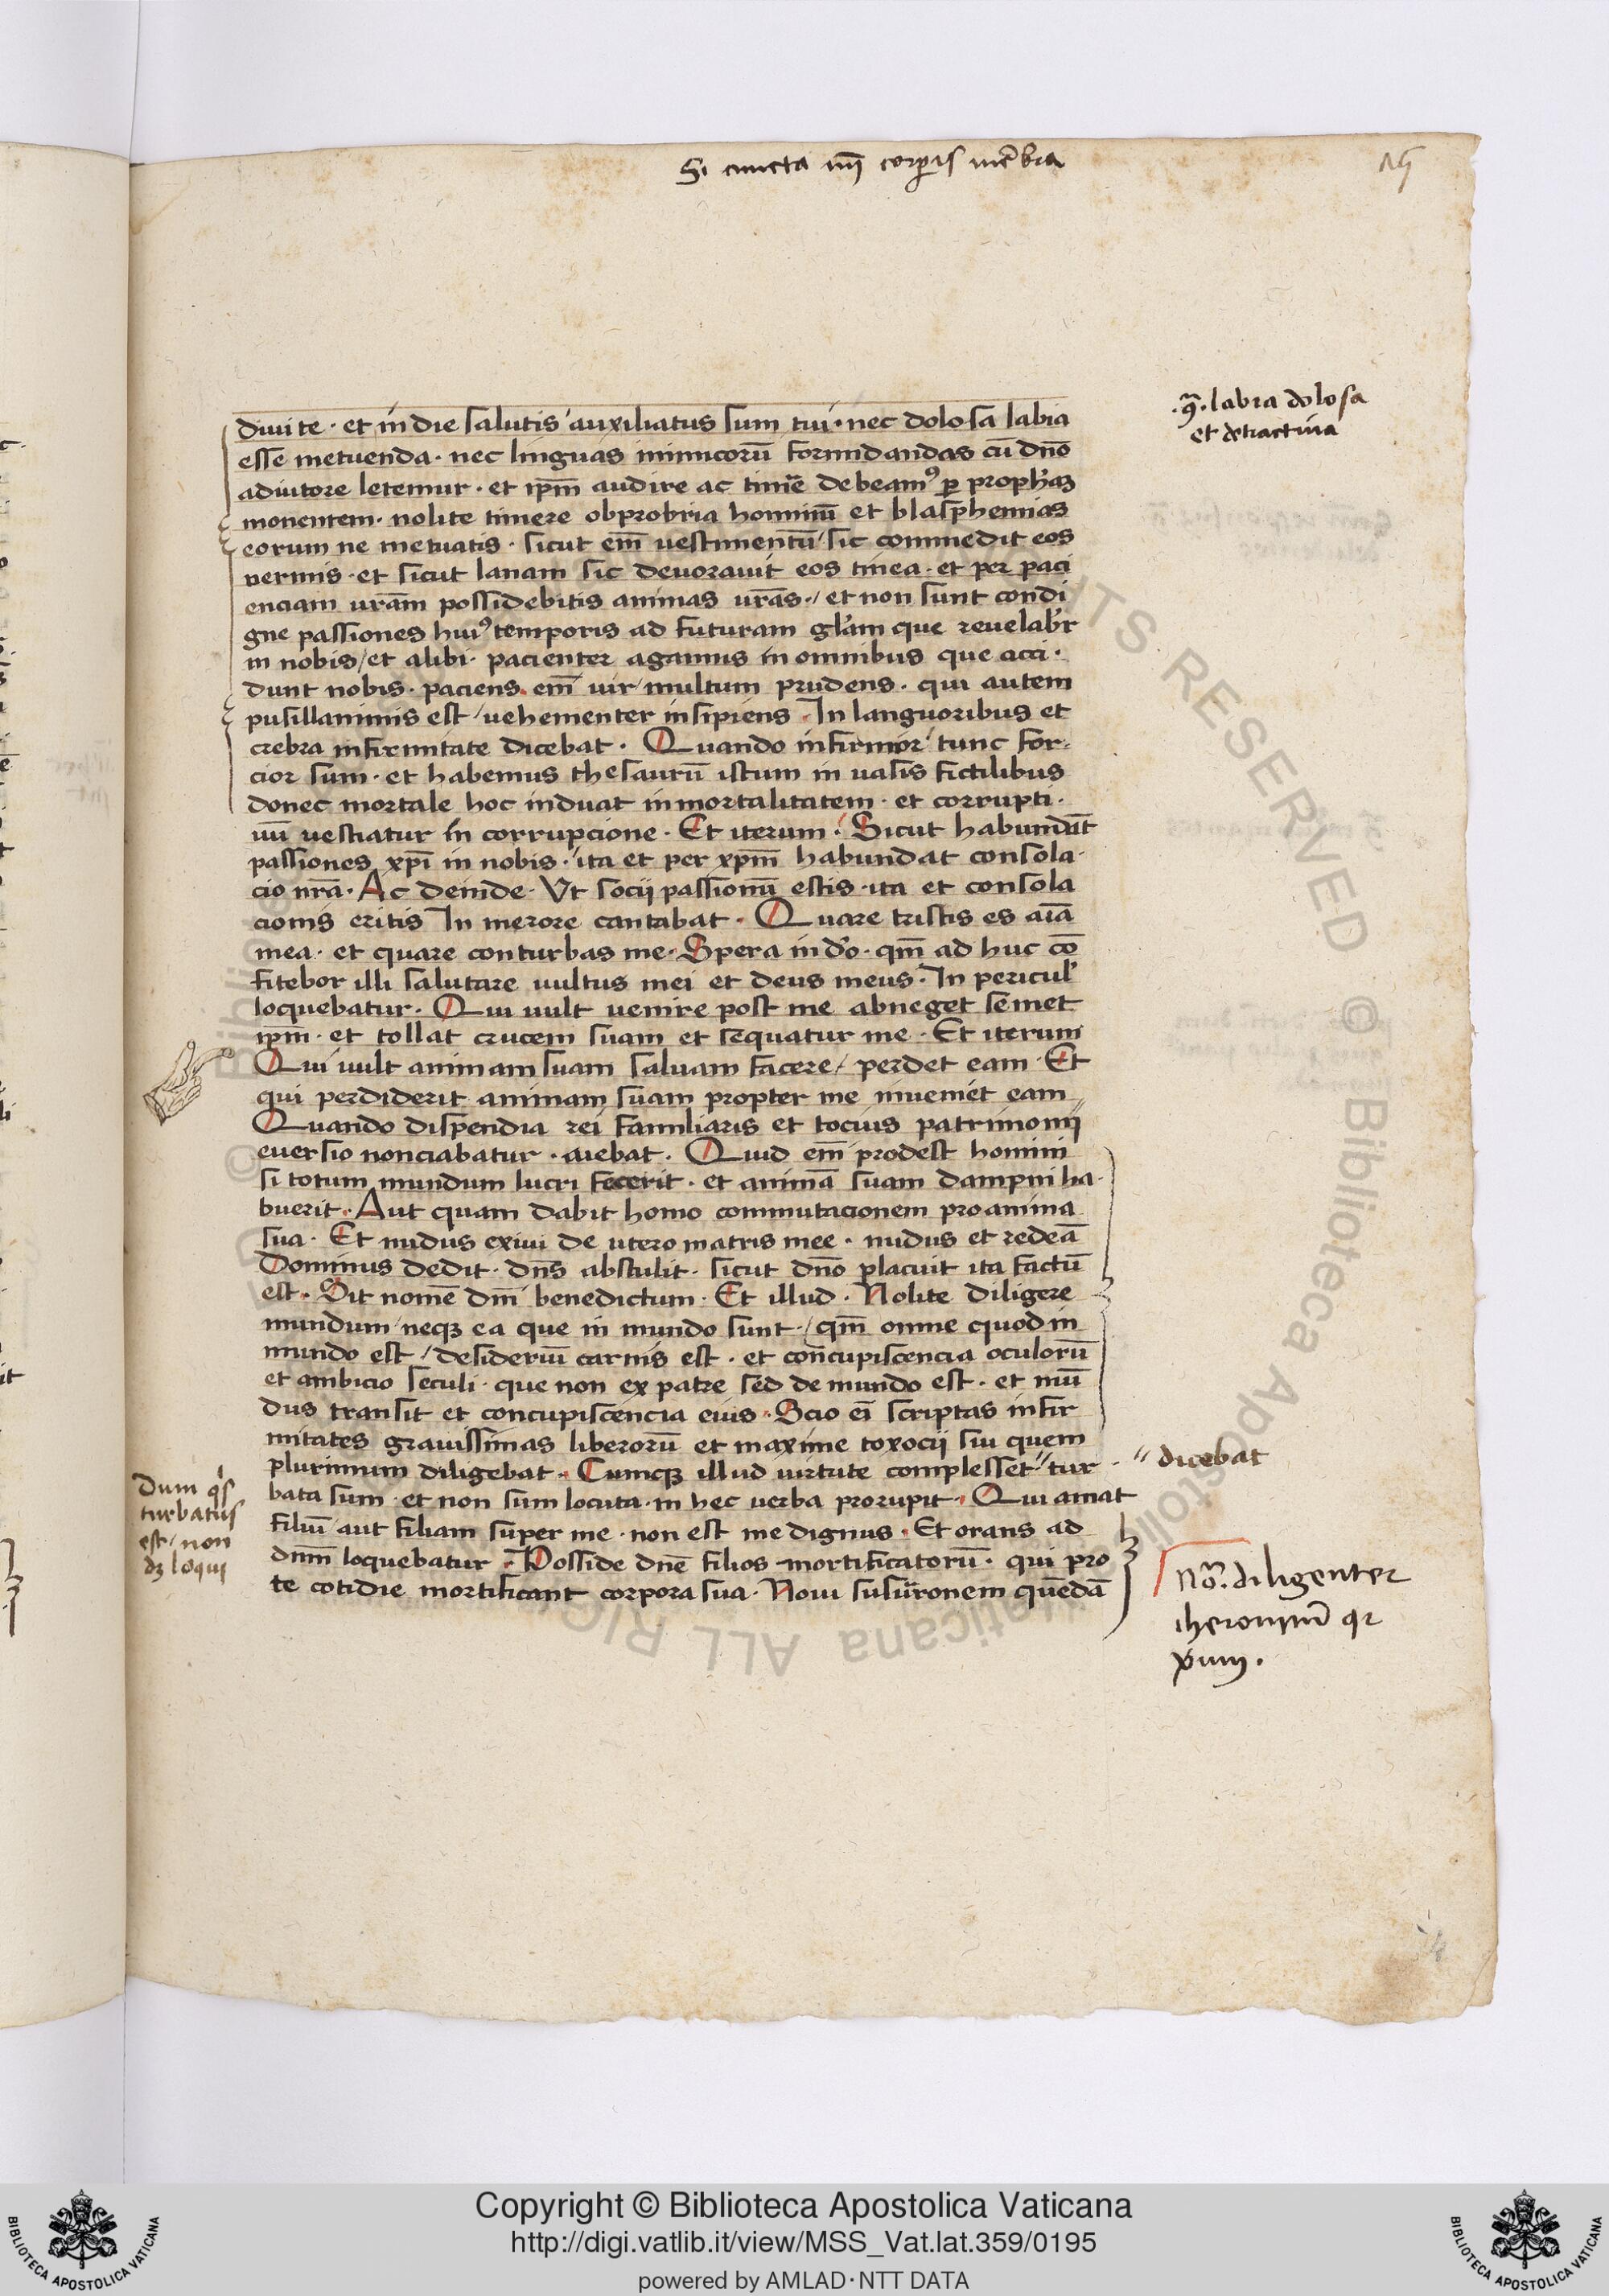 Si cuncta mei corporis mēbra
diui te · et in die salutis auxiliatus sum tui · nec dolosa labia
esse metuenda · nec linguas inimicorū formidandas cū dn̄o
adiutore letemur · et ip̄m audire ac timē debeamꝰ ꝑ proph̄az
monentem · nolite timere obprobria hominū et blasphemias
eorum ne metuatis · sicut em̄ vestimentū / sic commedit eos
vermis · et sicut lanam sic deuorauit eos tinea · et per paci
enciam vr̄am possidebitis animas vr̄as · / et non sunt condi
gne passiones huiꝰ temporis ad futuram gl̄am que reuelabr̄
in nobis / et alibi · pacienter agamus in omnibus que acci ·
dunt nobis · paciens em̄ uir / multum prudens · qui autem
pusillanimis est / vehementer insipiens · In languoribus et
crebra infirmitate dicebat · Quando infirmor / tunc for
cior sum · et habemus thesaurū istum in uasis fictilibus
donec mortale hoc induat inmortalitatem · et corrupti ·
uū vestiatur in corrupcione · Et iterum · / Sicut habundāt
passiones xp̄i in nobis · / ita et per xp̄m habundat consola ·
cio nr̄a · Ac deinde · Vt socij passionū estis · ita et consola
cionis eritis In merore cantabat · Quare tristis es aīa
mea · et quare conturbas me · Spera in do · qm̄ ad huc cō
fitebor illi salutare uultus mei et deus meus · In pericul̄
loquebatur · Qui uult venire post me abneget semet
ip̄m · et tollat crucem suam et sequatur me · Et iterum
Qui uult animam suam saluam facere / perdet eam · Et
qui perdiderit animam suam propter me inueniet eam
Quando dispendia rei familiaris et tocius patrimonij
euersio nonciabatur · aiebat · Quid em̄ prodest homini
si totum mundum lucri fecerit · et animā suam dampni ha ·
buerit · Aut quam dabit homo commutacionem pro anima
sua · Et nudus exiui de vtero matris mee · nudus et redeā
Dominus dedit · dn̄s abstulit · sicut dn̄o placuit ita factū
est · Sit nomē dn̄i benedictum · Et illud · Nolite diligere
mundum / neqꝫ ea que in mundo sunt · / qm̄ omne quod in
mundo est / desideriū carnis est · et concupiscencia oculorū
et ambicio seculi · que non ex patre sed de mundo est · et mū
dus transit et concupiscencia eius · Scio ei scriptas infir
mitates grauissimas liberorū et maxime toxocij sui quem
plurimum diligebat · Cumqꝫ illud uirtute complesset // tur ·
bata sum · et non sum locuta · in hec uerba prorupit · Qui amat
filiū aut filiam super me · non est me dignus · Et orans ad
dn̄m loquebatur · Posside dn̄e filios mortificatorū · qui pro
te cotidie mortificant corpora sua · Noui susurronem quēdā
labra dolosa
et detractiua
// dicebat
Dum qs
turbatus
est / non
dꝫ loqui
No · diligenter
iheronimū
Copyright © Biblioteca Apostolica Vaticana
http://digi.vatlib.it/view/MSS_Vat.lat.359/0195
powered by AMLAD·NTT DATA
BIBLIOTECA APOSTOLICA VATICANA
BIBLIOTECA APOSTOLICA VATICANA